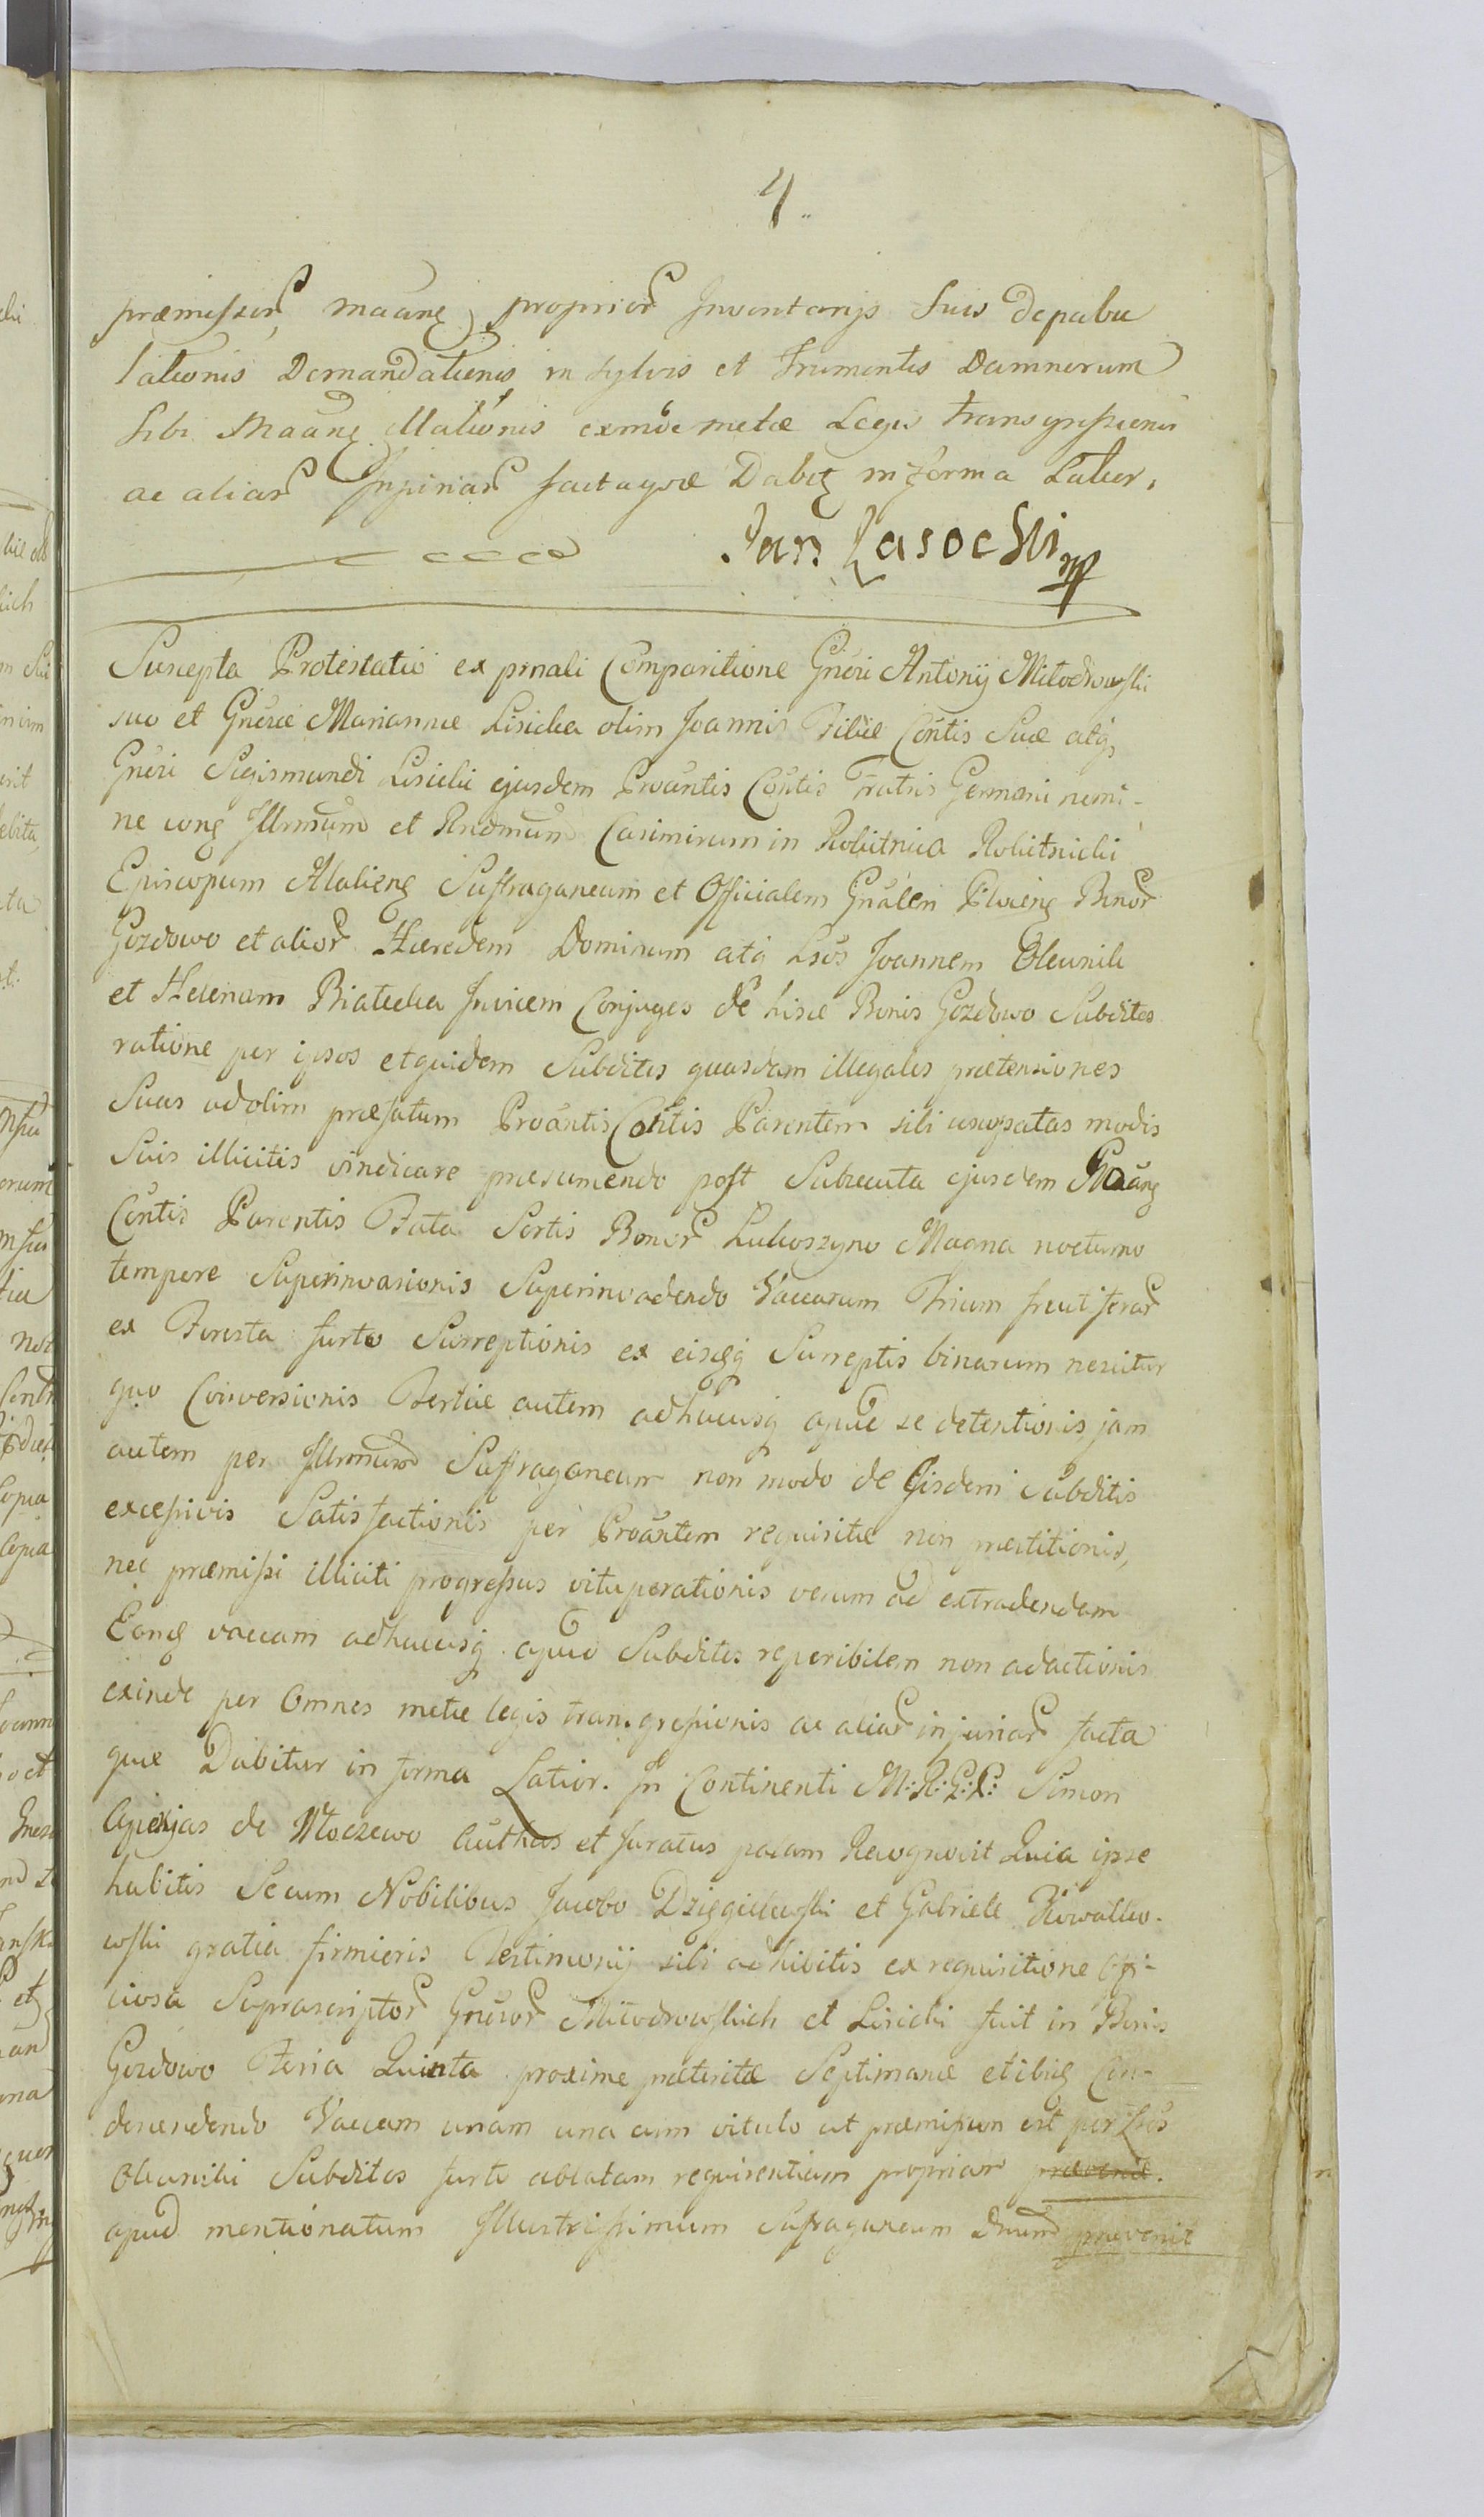 4
præmissor, maang, proprior Inventarijs Suis depabu
lationis Demandationis in sylvis et Frumentis Damnorum
sibi Maang Illationis exmde metæ Legis transgressionis
ac aliar Injuriar factaqve Dabtz in forma Latior,
Jan Lasocki mp
Suscepta Protestatio ex prnali Comparitione Gneri Antonij Miłodrowski
suo et Gneræ Mariannæ Lisicka olim Joannis Filiæ Contis Suæ atq,
Gneri Sigismundi Lisicki ejusdem Proantis Contis Fratris Germani nomi-
ne cong Illrmum et Rndmum Casimirum in Rokitnica Rokitnicki
Episcopum Suffraganeum et Officialem Gnalem Plocieng Bnor
Gozdowo et alior Hæredem Dominum atq Lsos Joannem Olcunik
et Helenam Białecka Invicem Conjuges de hisce Bonis Gozdowo Subditos
ratione per ipsos etquidem Subditos quasdam illegales prætensiones
Suas ad olim præfatum Proantis Contis Parentem sibi usurpatas modis
Suis illicitis vindicare præsumendo post Subsecuta ejusdem Proang
Contis Parentis Fata Sortis Bonor Lukoszyno Magna nocturno
tempore Superinvasionis Superinvadendo Vaccarum Trium fructiferar
ex Foresta furto Surreptionis ex eisqz Surreptis binarum nescitur
quo Conversionis Tertiæ autem adhucusq apud se detentionis jam
autem per Illrmum Suffraganeum non modo de Eisdem Subditis
excessivis Satisfactionis per Proantem requisitæ non præstitionis,
nec præmissi illiciti progressus vituperationis verum ad extradendam
Eang vaccam adhucusq apud Subditos reperibilem non adactionis
exinde per Omnes metæ legis transgressionis ac aliar injuriar facta
quæ Dabitur in forma Latior. In Continenti M: R: G: R: Simon
de Moczewo Authus et Juratus palam Recognovit Quia ipse
habitis Secum Nobilibus Jacobo Dzięgielewski et Gabriele Kowalko-
wski gratia firmioris Testimonij sibi adhibitis ex requisitione offi-
ciosa Suprascriptor Gneror Miłodrowskich et Lisicki fuit in Bonis
Gozdowo Feria Quinta proxime præteritæ Septimanæ etibiq Con-
descendendo Vaccam unam una cum vitulo ut præmissum est per Lsos
Olcuniki Subditos furto ablatam requirentiam propriam prævenit.
apud mentionatum Illustrissimum Sufraganeum Dnum prævenit